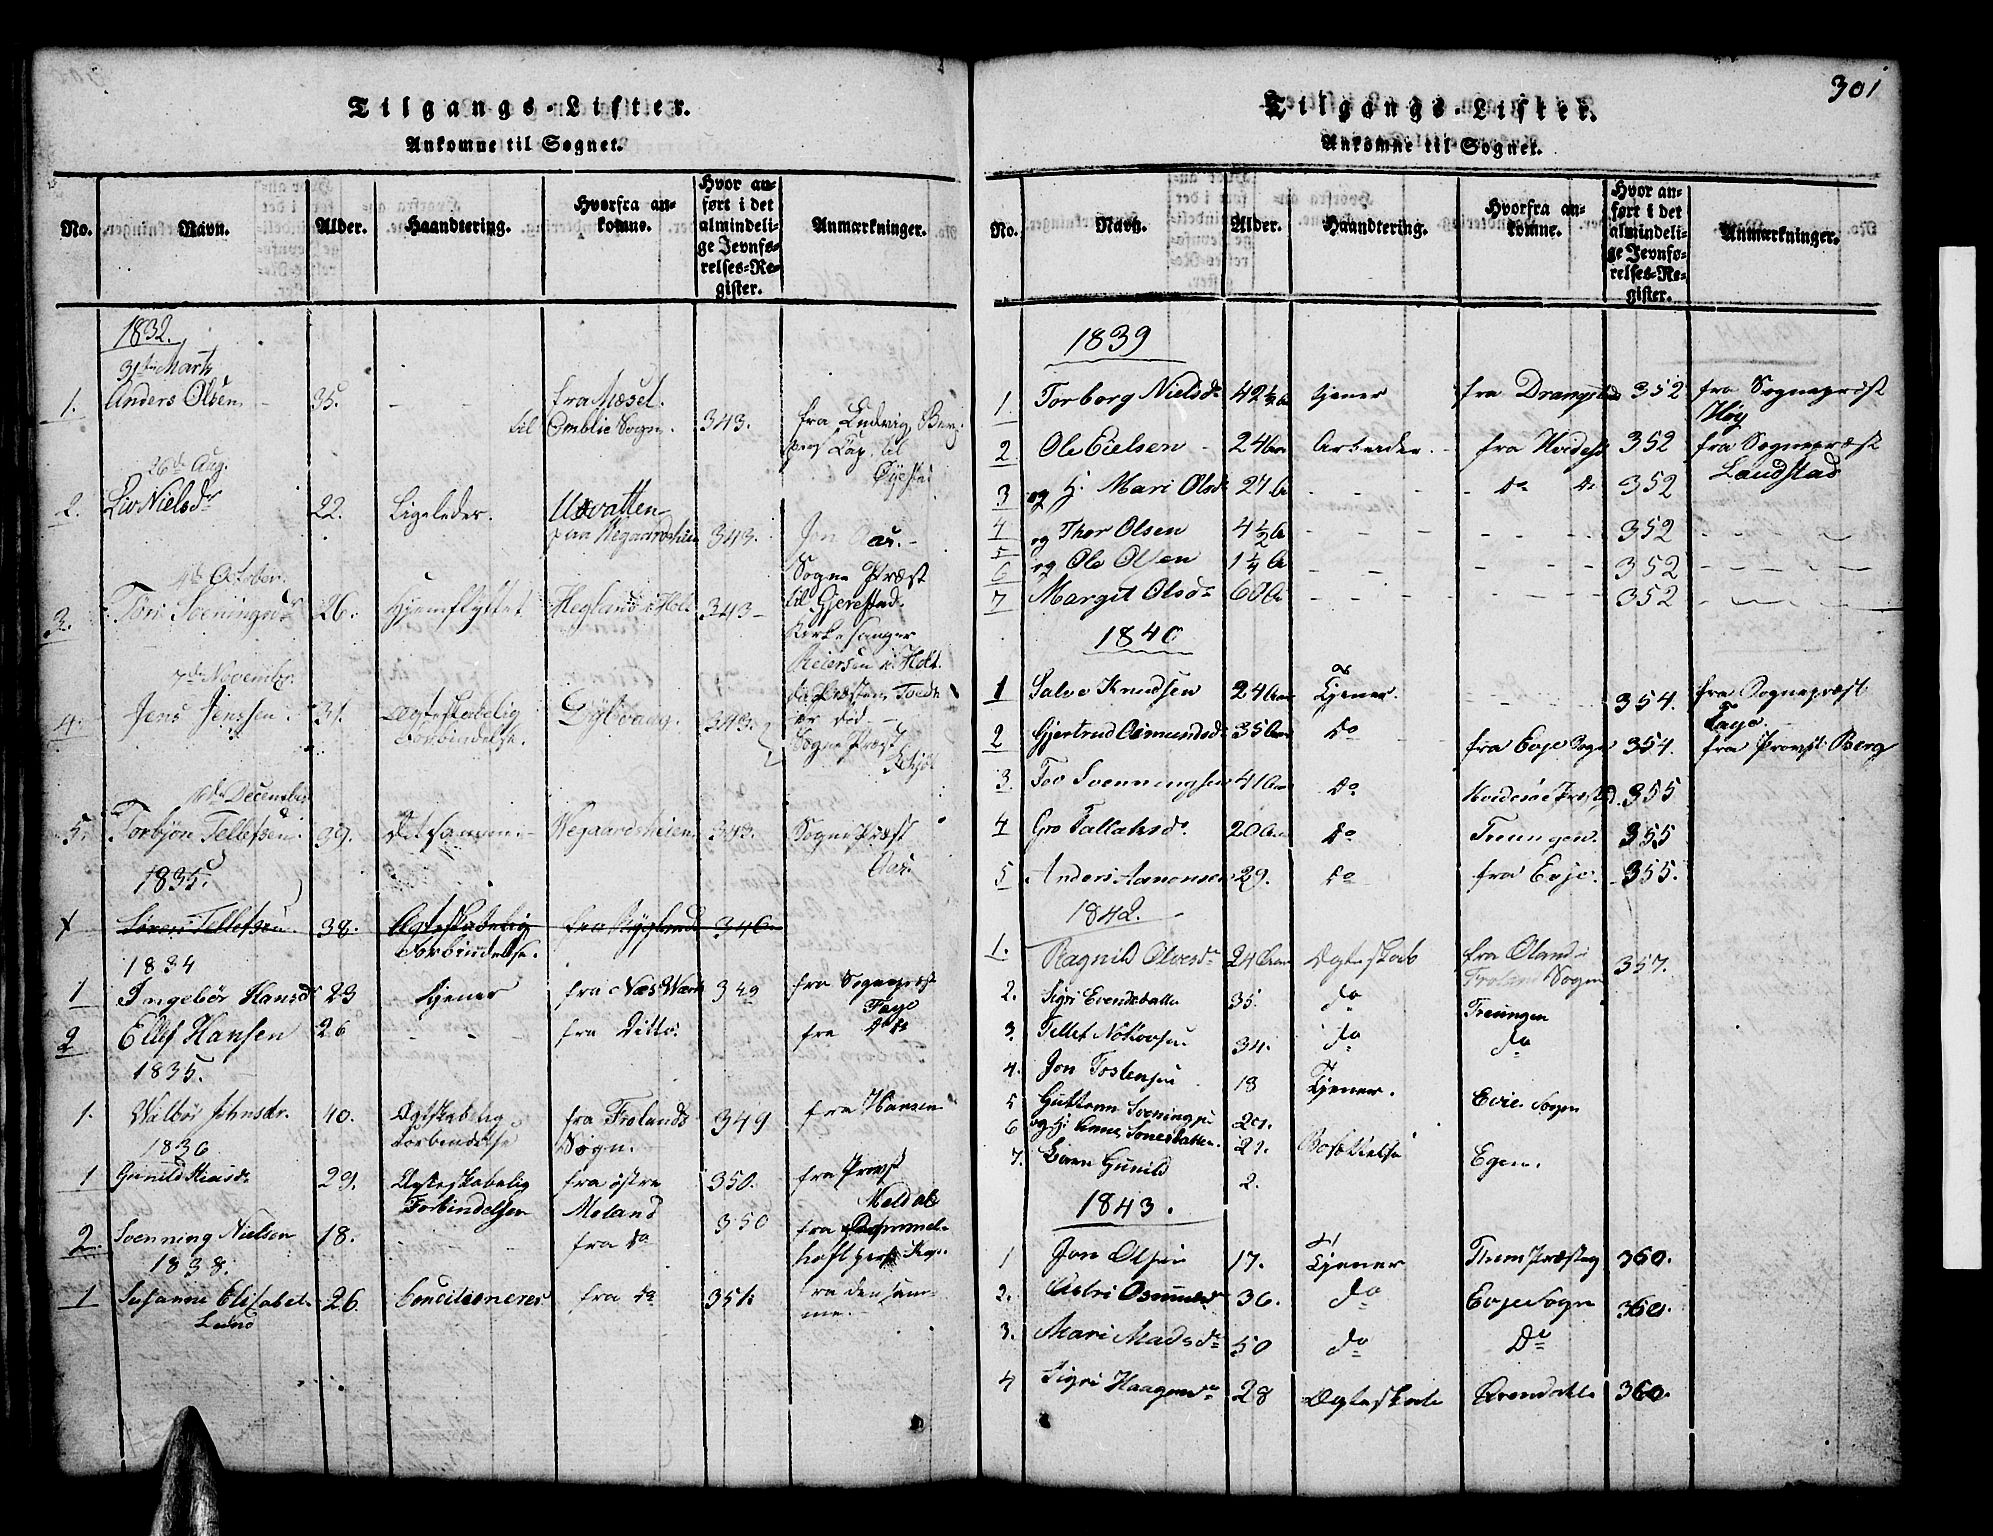 Tilgangs-Lister.
Ankomne til Sognet.
No. Navn. Alder. Haandtering. Hvorfra ankomne. Hvor anført i det almindelige Jevnførelses-Register. Anmærkninger.
1832.
31te Marts
1. Anders Olsen 35. - - fra Mæsel til Omblie Sogn. 343. fra Ludvig Berg. pers. Cap. til Øyestad
26de Aug.
2. Liv Nielsdr 22. Ligeledes. Uvatten paa Wegaardsheien 343. Jon Aas.
4de October.
3. Toni Sveningsdr 26. Hjemflyttet Hegland i Holt 343 Sogne Præst til Gjerestad. Kirkesanger Reiersen i Holt. da Præsten Tvedt er død
7de November.
4. Jens Jenssen. 31. Ægteskabelig Forbindelse. Dybvaag. 343. Sogne Præst
14de December
5. Torbjøn Tellefsen. 39. Det samme. Wegaardsheien 343. Sogne Præst Aas.
1835.
x Søren Tellefsen 38. Ægteskabelig Forbindelse. fra Ryglund 346
1834
1 Ingebør Hansdr 23 tjener fra Næs Værk 349 fra Sognepræst Faye
2 Ellef Hansen 26 - - fra Ditto. fra do
1835.
1. Valbør Johnsdr. 40. Ægteskabelig Forbindelse fra Frolands Sogn. 349 fra Hansen
1836
1 Gunild 29. Ægteskabelig Forbindelsen fra østre Moland 350. fra Provst Meldal
2 Svenning Nielsen 18. fra do 350 fra
1838.
1 Susanne Elisabet Lund 26 Conditioneres fra do 351. fra den samme.
301
Tilgangs-Lister.
Ankomne til Sognet.
No. Navn. Alder. Haandtering. Hvorfra ankomne. Hvor anført i det almindelige Jevnførelses-Register. Anmærkninger.
1839
1 Torborg Nielsdr 42 1/2 tjener fra Drangedal 352 fra Sognepræst Høy
2 Ole Eielsen 24 Arbeider fra Hvidesø 352 fra Sognepræst Landstad
3 og H. Mari Olsdr 27 - - do do 352
4 og Thor Olsen 4 1/2 - - 352
5 6 og Ole Olsen 1 1/4 - - 352
7 Margit Olsdr 60 - - 352
1840
1 Salve Knudsen 24 Tjener. - - 354. fra Sognepræst Faye
2 Gjertrud Osmundsdr 35 do fra Evje Sogn 354. fra Provst Berg
3 Tov Svenningsen 41 do Hvidesøe Præstgd 355
4 Gro Tallaksdr 20 do Treungen 355
5 Anders Aanonsen 29. do fra Evje. 355.
1842.
1. Ragnild Olvesdr 24 Ægteskab fra Øland Froland Sogn 357.
2. Sigri Evendsdatter 35. do Treungen
3. Tellef Notovsen 34. do do
4. Jon Tostensen 18 Tjener. Evie Sogn
5 Guttorm Sveningsen 29.
6 og H. Anne Tonesdatter. 21. Bosættelse Egen.
7. Barn Gunild 2.
1843.
1 Jon Olsen 17. Tjener Præsteg 360.
2. Astri Osmundsdr 36. do Evje Sogn 360.
3. Mari Madsdr 50 do Do
4 Sigri Haagensdr 28 Ægteskab Arendahl 360.